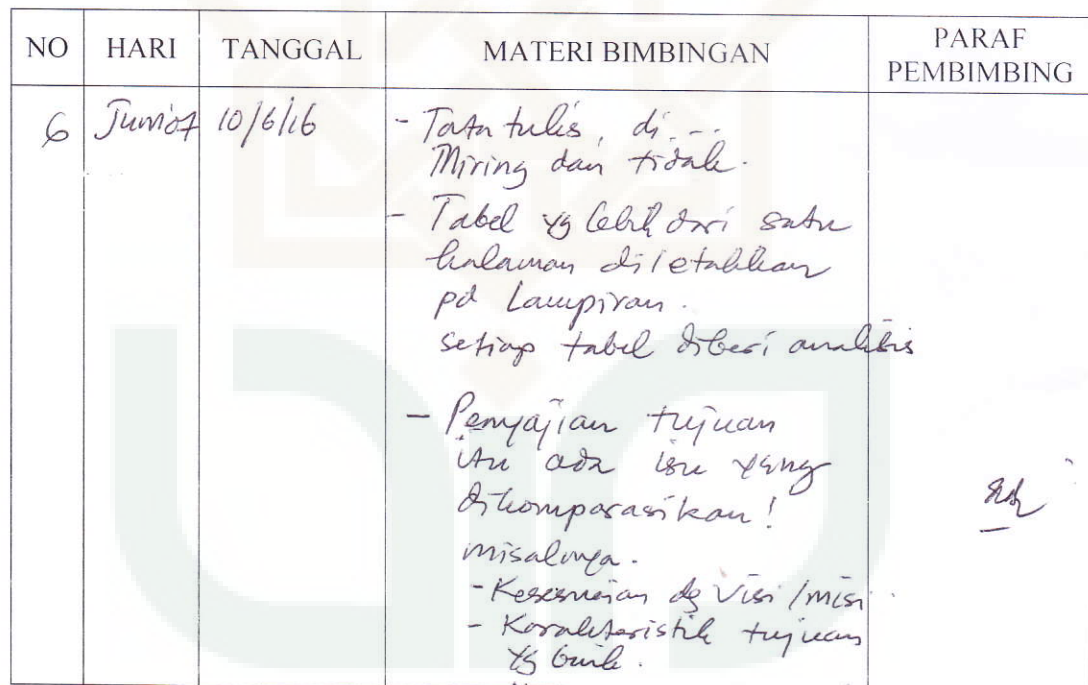 NO HARI TANGGAL MATERI BIMBINGAN PARAF PEMBIMBING
6 Jum'at 10/6/16 - Tata tulis, di...
Miring dan tidak.
- Tabel yg lebih dari satu
halaman diletakkan
pd Lampiran.
setiap tabel diberi analisis
- Penyajian tujuan
itu ada isu yang
dikomparasikan!
misalnya.
- Kesesuaian dg Visi/misi
- Karakteristik tujuan
yg baik.